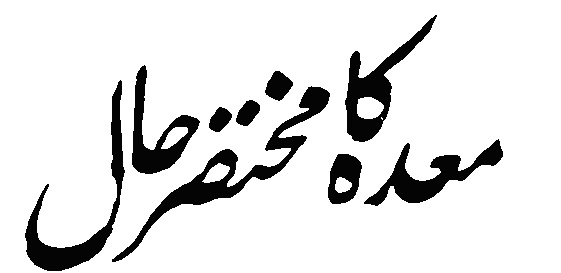 معدہ کا مختصر حال